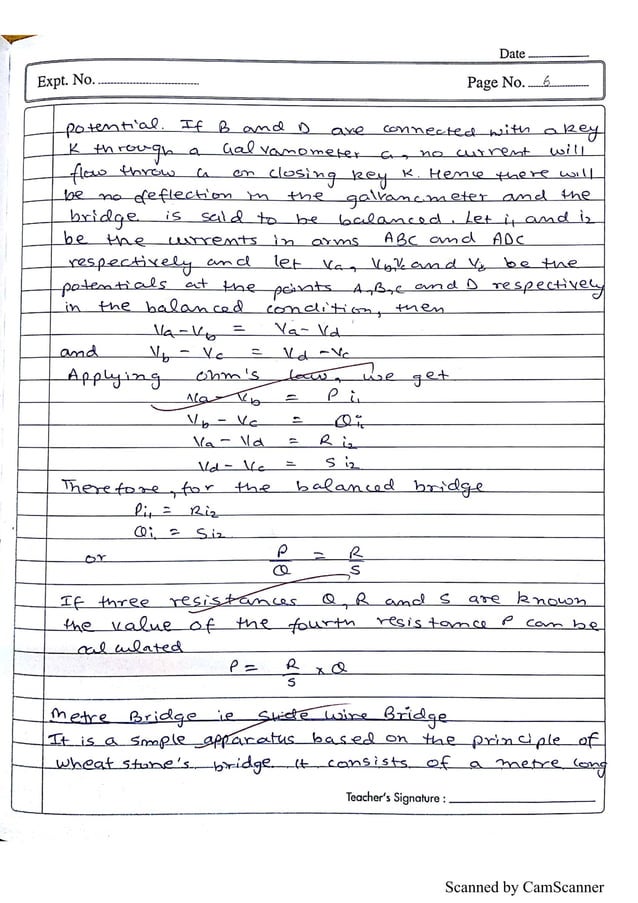 Date
Expt. No.
Page No. 6
potential. If B and D are connected with a key
K through a Galvanometer G, no current will
flow throw G on closing key K. Hence there will
be no deflection in the galvanometer and the
bridge is said to be balanced. Let i1 and i2
be the currents in arms ABC and ADC
respectively and let Va, Vb, Vc and Vd be the
potentials at the points A, B, C and D respectively
in the balanced condition, then
Va-Vb = Va-Vd
and Vb - Vc = Vd -Vc
Applying ohm's law, we get
Va - Vb = P i1
Vb - Vc = Qi1
Va - Vd = R i2
Vd - Vc = S i2
Therefore, for the balanced bridge
Pi1 = Ri2
Qi1 = Si2
or P/Q = R/S
If three resistances Q, R and S are known
the value of the fourth resistance P can be
calculated
P = R/S x Q
Metre Bridge ie Slide wire Bridge
It is a smple apparatus based on the principle of
wheat stone's bridge. It consists of a metre long
Teacher's Signature :
Scanned by CamScanner